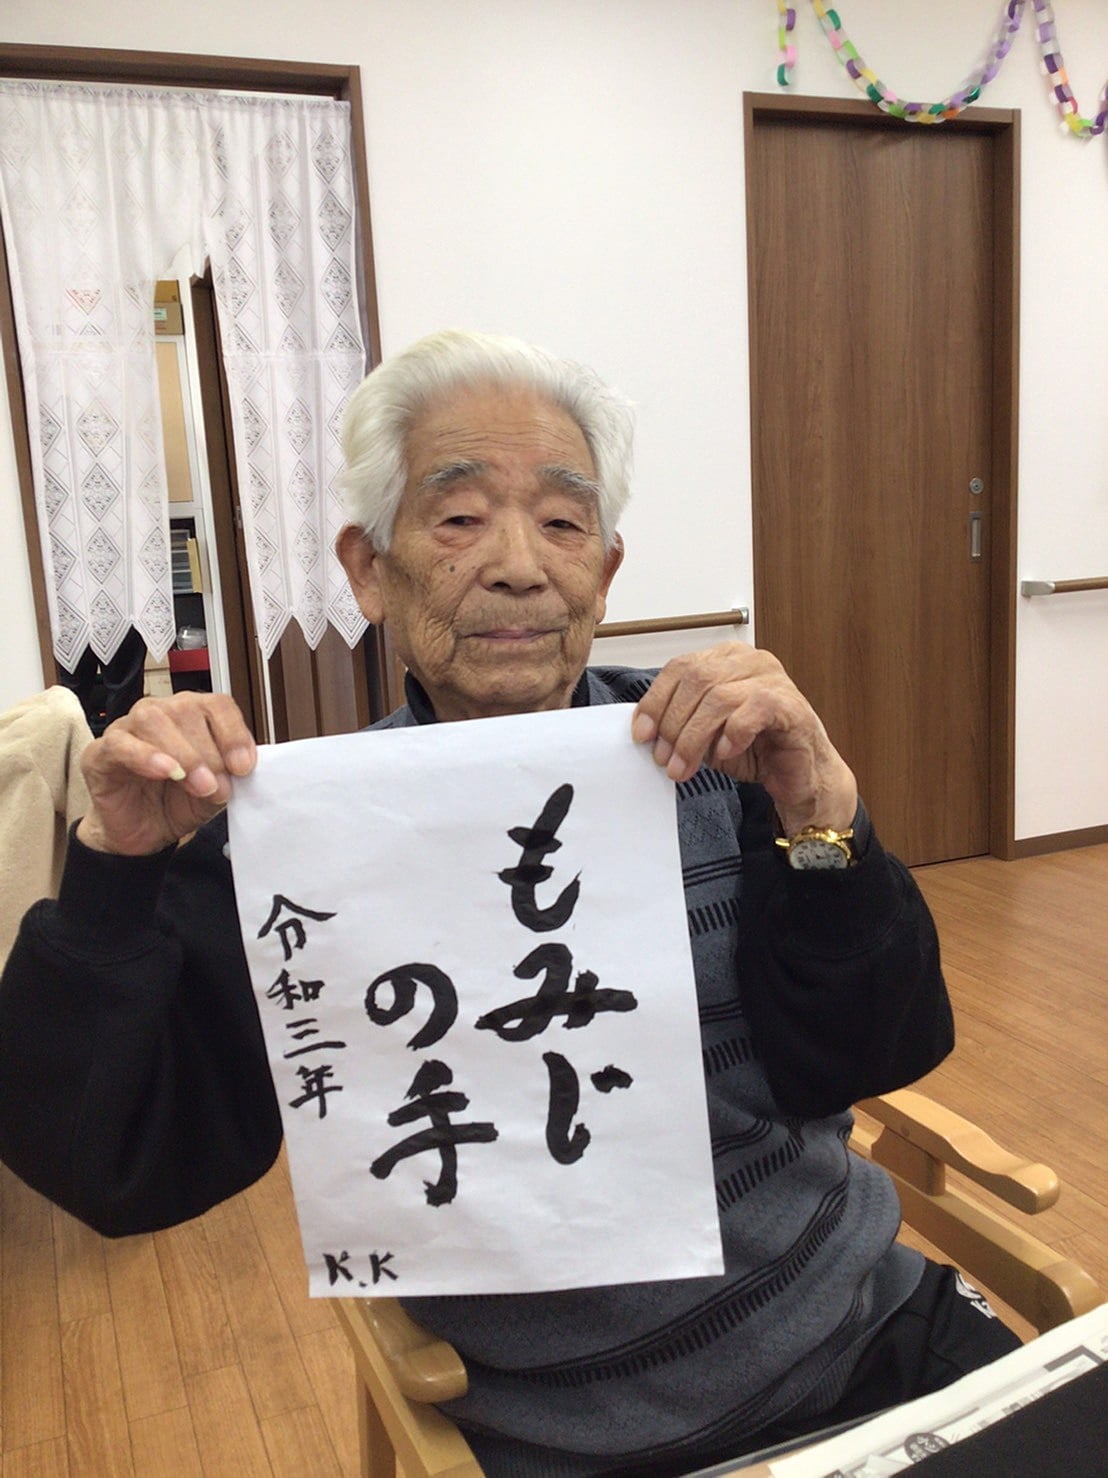 もみじ
の手
令和三年
K.K